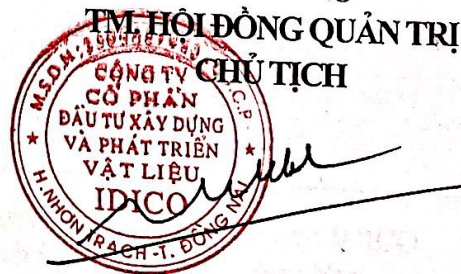 TM. HỘI ĐỒNG QUẢN TRỊ
CHỦ TỊCH
CÔNG TY
CỔ PHẦN
ĐẦU TƯ XÂY DỰNG
VÀ PHÁT TRIỂN
VẬT LIỆU
IDICO
H. NHƠN TRẠCH - T. ĐỒNG NAI